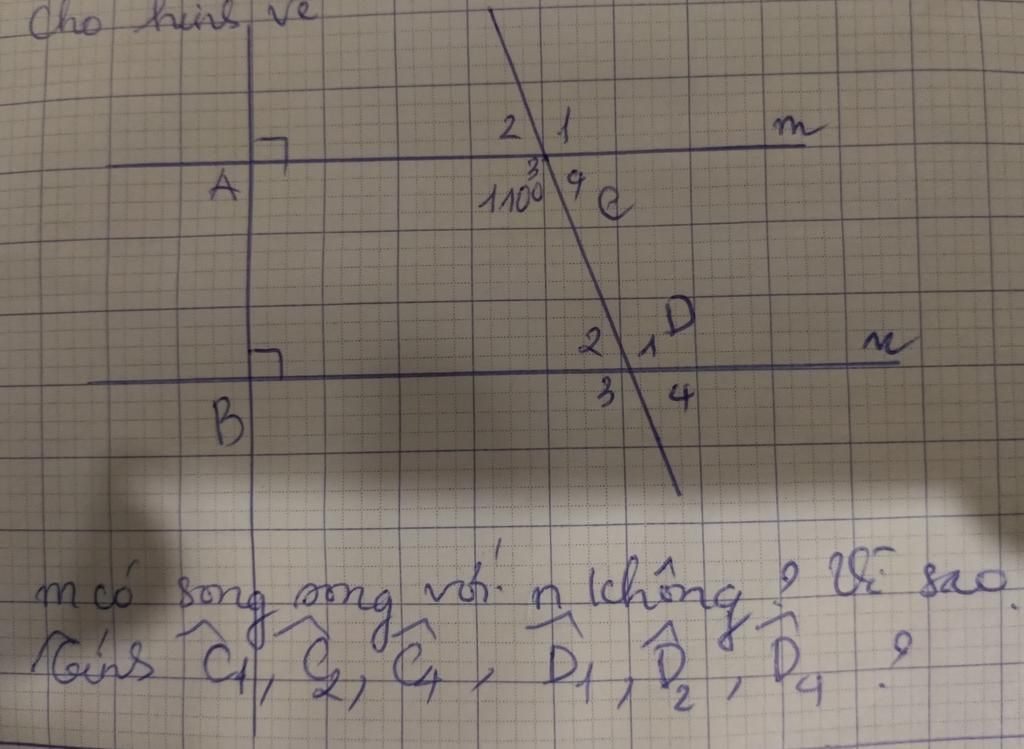 Cho hình vẽ
2 1 m
A 3 4
110° C
D
2 1 n
3 4
B
m có song song với n không? Vì sao.
Tính Ĉ1, Ĉ2, Ĉ4, D̂1, D̂2, D̂4?